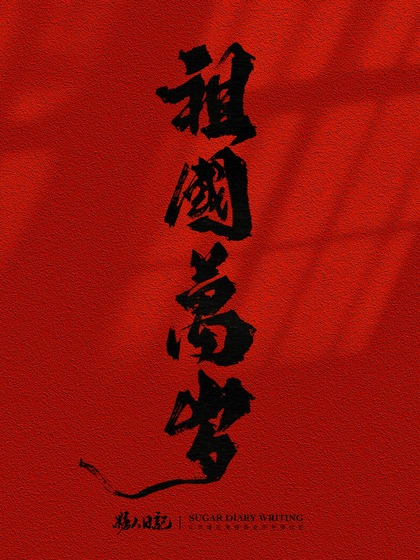 祖國萬岁
SUGAR DIARY WRITING